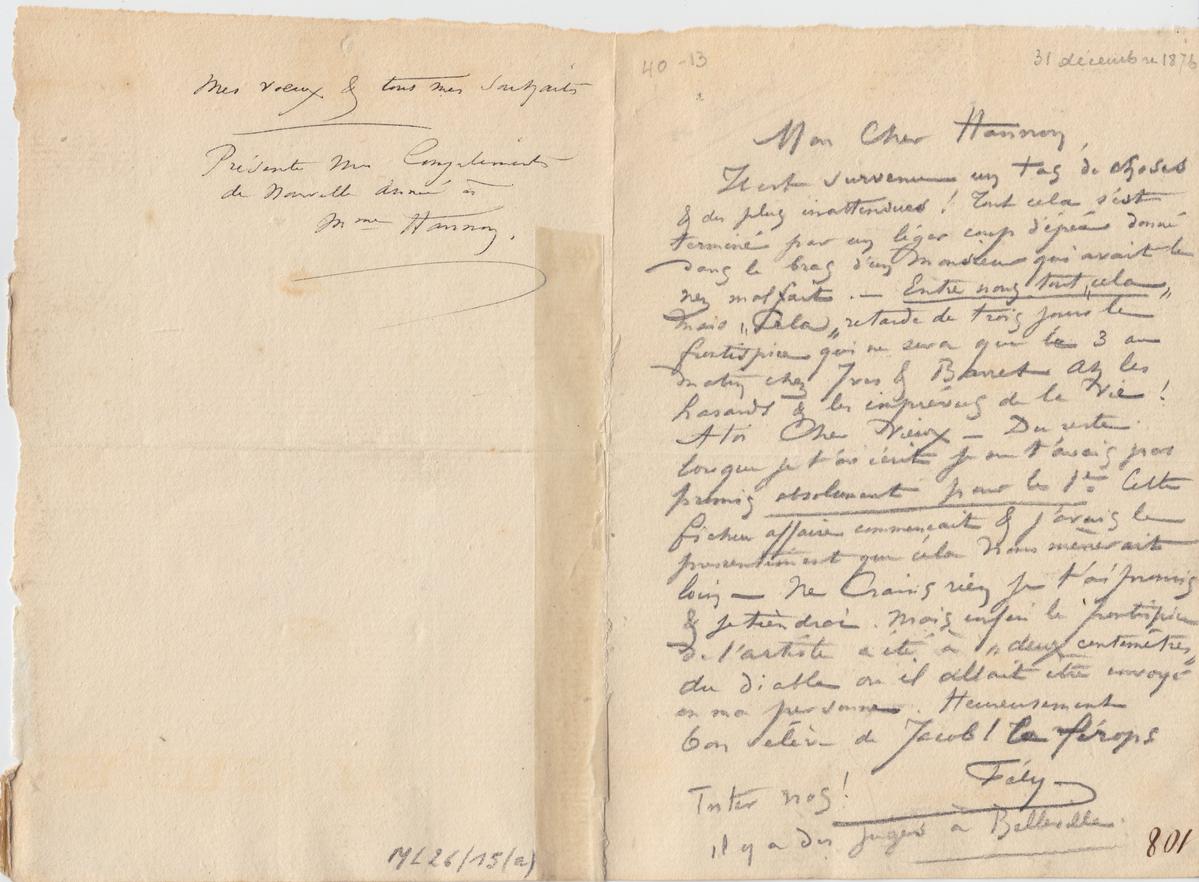 Mes voeux & tous mes Souhaits
Présente mes Compliments
de Nouvelle Année à
Mme Hannon.
ML26/15(a)
40-13
31 décembre 1876
Mon Cher Hannon,
Il est survenu un tas de choses
& des plus inattendues! Tout cela s'est
terminé par un léger coup d'épée donné
dans le bras d'un Monsieur qui avait le
nez mal fait. — Entre nous tout „cela„
mais „Cela„ retarde de trois jours le
frontispice qui ne sera que le 3 au
matin chez Yves & Barret. Ah les
hasards & les imprévus de la Vie!
A toi Cher Vieux — Du reste
lorsque je t'ai écrit je ne t'avais pas
promis absolument pour le 1er. Cette
fichue affaire commençait & j'avais le
pressentiment que cela nous mènerait
loin — Ne Crains rien je t'ai promis
& je tiendrai. Mais enfin le frontispice
de l'artiste a été à „deux centimètres„
du diable où il allait être envoyé
en ma personne. Heureusement
bon élève de Jacob! le férops
Fély
Inter nos!
il y a des juges à Belleville.
801